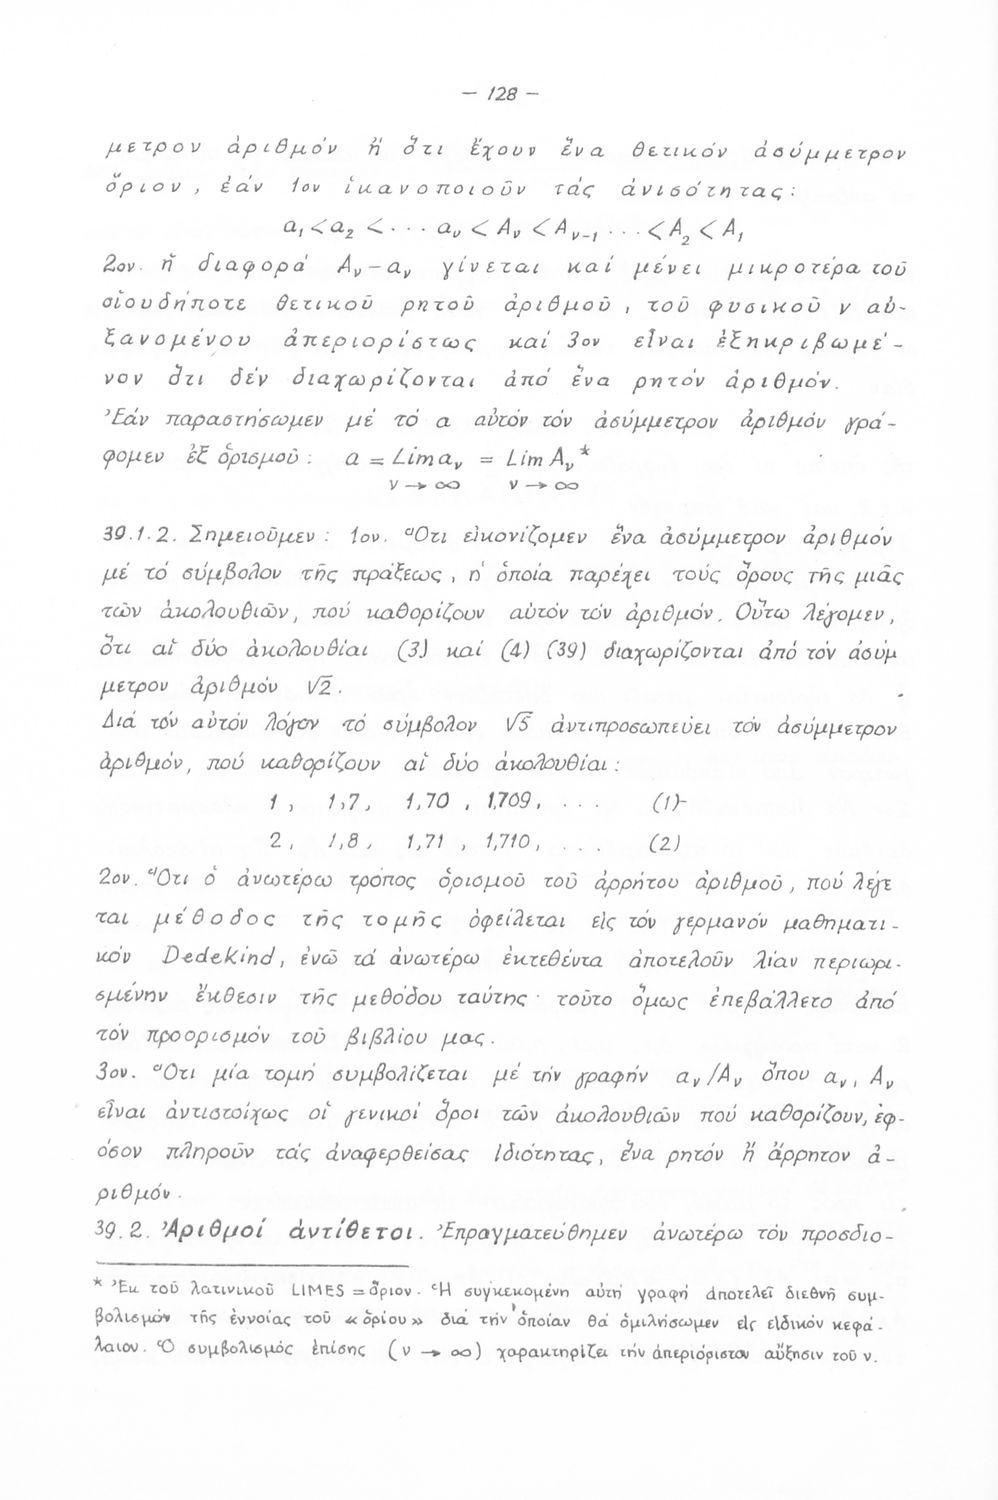 - 128 -
μετρον ἀριθμόν ἤ ὅτι ἔχουν ἕνα θετικόν ἀσύμμετρον
ὅριον, ἐάν 1ον ἱκανοποιοῦν τάς ἀνισότητας:
α₁ < α₂ < · · · αν < Αν < Αν₋₁ · · · < Α₂ < Α₁
2ον. ἡ διαφορά Αν - αν γίνεται καί μένει μικροτέρα τοῦ
οἱουδήποτε θετικοῦ ρητοῦ ἀριθμοῦ, τοῦ φυσικοῦ ν αὐ-
ξανομένου ἀπεριορίστως καί 3ον εἶναι ἐξηκριβωμέ-
νον ὅτι δέν διαχωρίζονται ἀπό ἕνα ρητόν ἀριθμόν.
Ἐάν παραστήσωμεν μέ τό α αὐτόν τόν ἀσύμμετρον ἀριθμόν γρά-
φομεν ἐξ ὁρισμοῦ: α = Lim αν = Lim Αν *
ν → ∞ ν → ∞
39.1.2. Σημειοῦμεν: 1ον. Ὅτι εἰκονίζομεν ἕνα ἀσύμμετρον ἀριθμόν
μέ τό σύμβολον τῆς πράξεως, ἡ ὁποία παρέχει τούς ὅρους τῆς μιᾶς
τῶν ἀκολουθιῶν, πού καθορίζουν αὐτόν τόν ἀριθμόν. Οὕτω λέγομεν,
ὅτι αἱ δύο ἀκολουθίαι (3) καί (4) (39) διαχωρίζονται ἀπό τόν ἀσύμ
μετρον ἀριθμόν √2.
Διά τόν αὐτόν λόγον τό σύμβολον √5 ἀντιπροσωπεύει τόν ἀσύμμετρον
ἀριθμόν, πού καθορίζουν αἱ δύο ἀκολουθίαι:
1, 1,7, 1,70, 1,709, . . . (1)
2, 1,8, 1,71, 1,710, . . . (2)
2ον. Ὅτι ὁ ἀνωτέρω τρόπος ὁρισμοῦ τοῦ ἀρρήτου ἀριθμοῦ, πού λέγε
ται μέθοδος τῆς τομῆς ὀφείλεται εἰς τόν γερμανόν μαθηματι-
κόν Dedekind, ἐνῶ τά ἀνωτέρω ἐκτεθέντα ἀποτελοῦν λίαν περιωρι-
σμένην ἔκθεσιν τῆς μεθόδου ταύτης· τοῦτο ὅμως ἐπεβάλλετο ἀπό
τόν προορισμόν τοῦ βιβλίου μας.
3ον. Ὅτι μία τομή συμβολίζεται μέ τήν γραφήν αν/Αν ὅπου αν, Αν
εἶναι ἀντιστοίχως οἱ γενικοί ὅροι τῶν ἀκολουθιῶν πού καθορίζουν, ἐφ-
όσον πληροῦν τάς ἀναφερθείσας ἰδιότητας, ἕνα ρητόν ἤ ἄρρητον ἀ-
ριθμόν.
39.2. Ἀριθμοί ἀντίθετοι. Ἐπραγματεύθημεν ἀνωτέρω τόν προσδιο-
* Ἐκ τοῦ λατινικοῦ LIMES = ὅριον. Ἡ συγκεκομένη αὐτή γραφή ἀποτελεῖ διεθνῆ συμ-
βολισμόν τῆς ἐννοίας τοῦ «ὁρίου» διά τήν ὁποίαν θά ὁμιλήσωμεν εἰς εἰδικόν κεφά-
λαιον. Ὁ συμβολισμός ἐπίσης (ν → ∞) χαρακτηρίζει τήν ἀπεριόριστον αὔξησιν τοῦ ν.